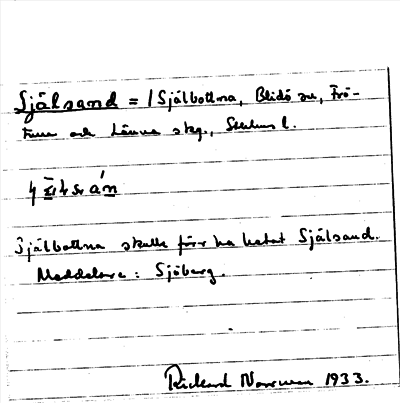 Själsand = / Själbottna, Blidö sn, Frö-
tuna och Länna skg., Sthlms l.
Själbottna skulle förr ha hetat Själsand.
Meddelare: Sjöberg.
Rickard Norrman 1933.